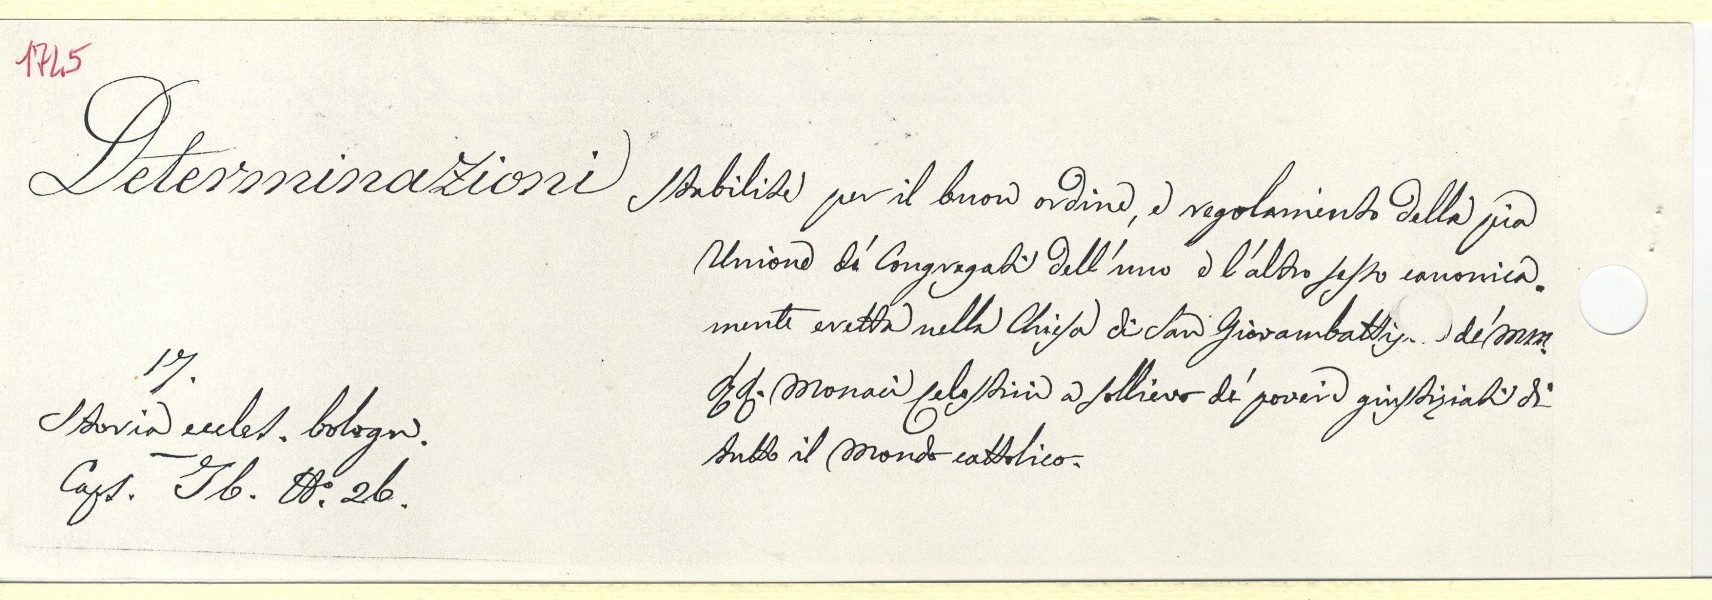 1745
Determinazioni stabilite per il buon ordine, e regolamento della pia
Unione de' Congregati dell'uno e l'altro sesso canonica-
mente eretta nella Chiesa di San Giovambattis.. de' MM.
RR. Monaci Celestini a sollievo de' poveri giustiziati di
tutto il Mondo cattolico.
17.
Storia eccles. bologn.
Caps. N.° 26.